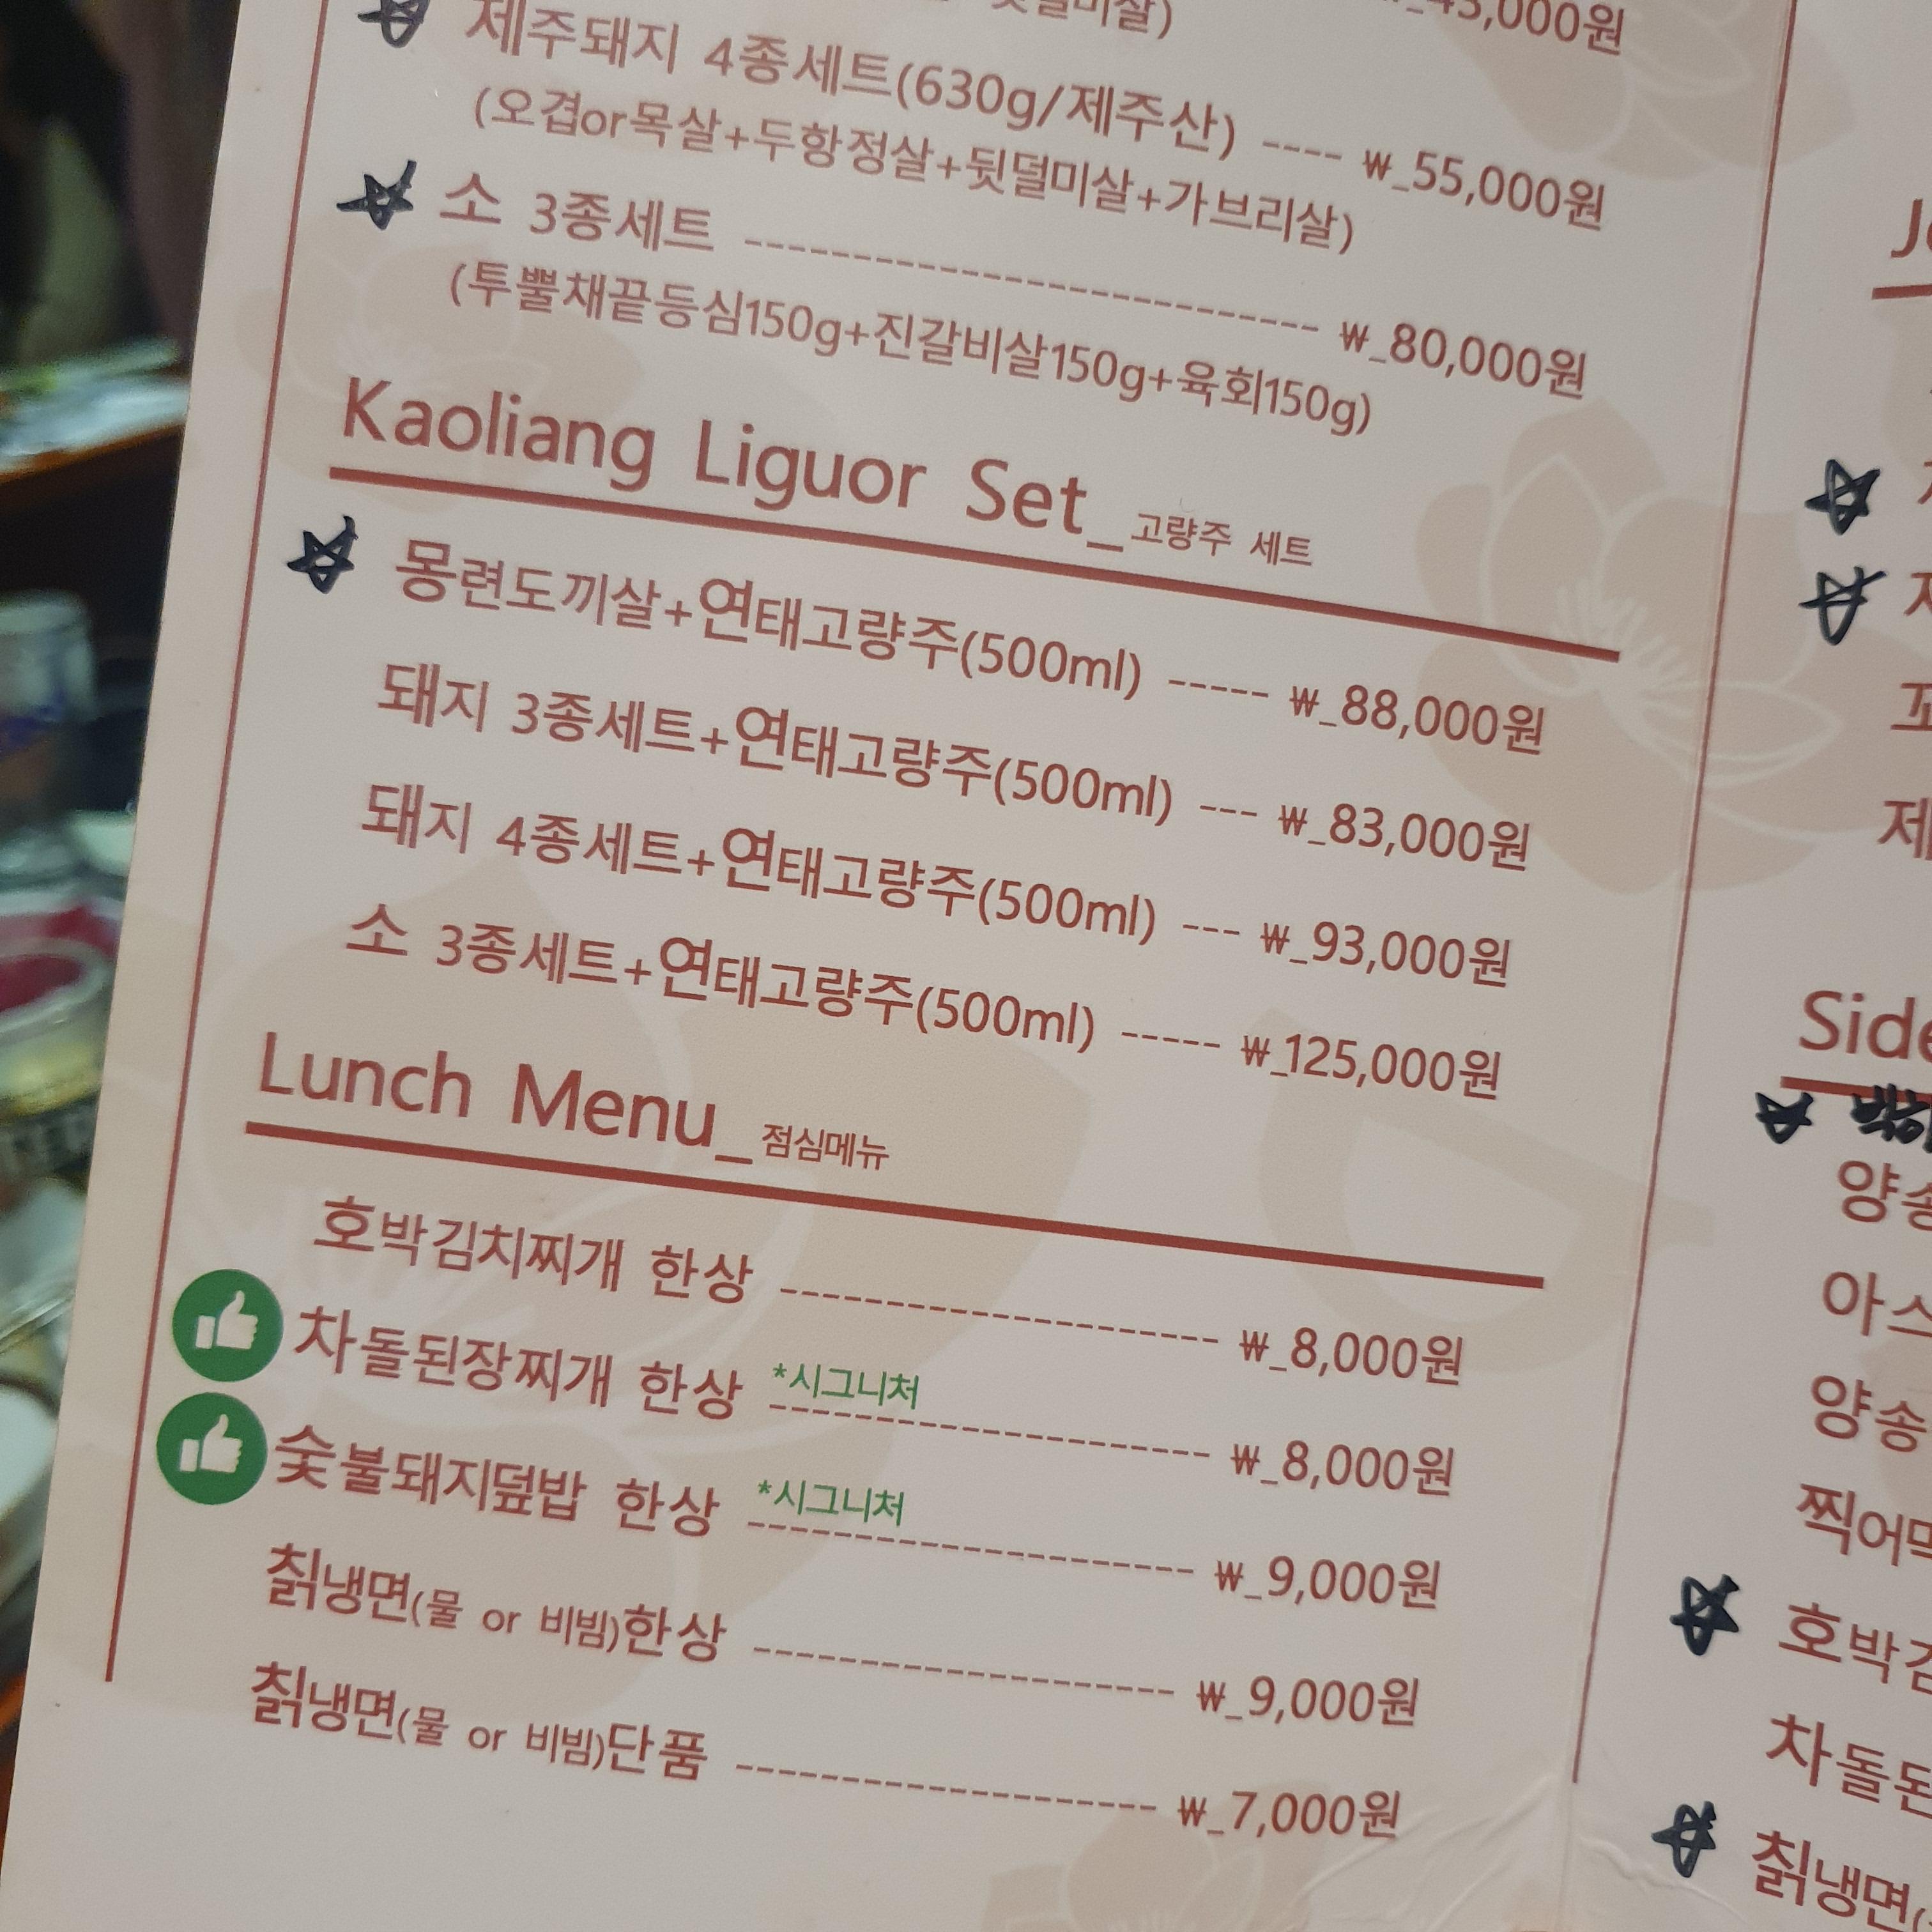 45,000원
제주돼지 4종세트(630g/제주산) ---- ₩_55,000원
(오겹or목살+두항정살+뒷덜미살+가브리살)
소 3종세트 ---- ₩_80,000원
(투뿔채끝등심150g+진갈비살150g+육회150g)
Kaoliang Liguor Set_고량주 세트
몽련도끼살+연태고량주(500ml) ----- ₩_88,000원
돼지 3종세트+연태고량주(500ml) --- ₩_83,000원
돼지 4종세트+연태고량주(500ml) --- ₩_93,000원
소 3종세트+연태고량주(500ml) ----- ₩_125,000원
Lunch Menu_점심메뉴
호박김치찌개 한상 ---- ₩_8,000원
차돌된장찌개 한상 *시그니처 ---- ₩_8,000원
숯불돼지덮밥 한상 *시그니처 ---- ₩_9,000원
칡냉면(물 or 비빔)한상 ---- ₩_9,000원
칡냉면(물 or 비빔)단품 ---- ₩_7,000원
Side
양송
아스
양송
찍어먹
호박김
차돌된
칡냉면(